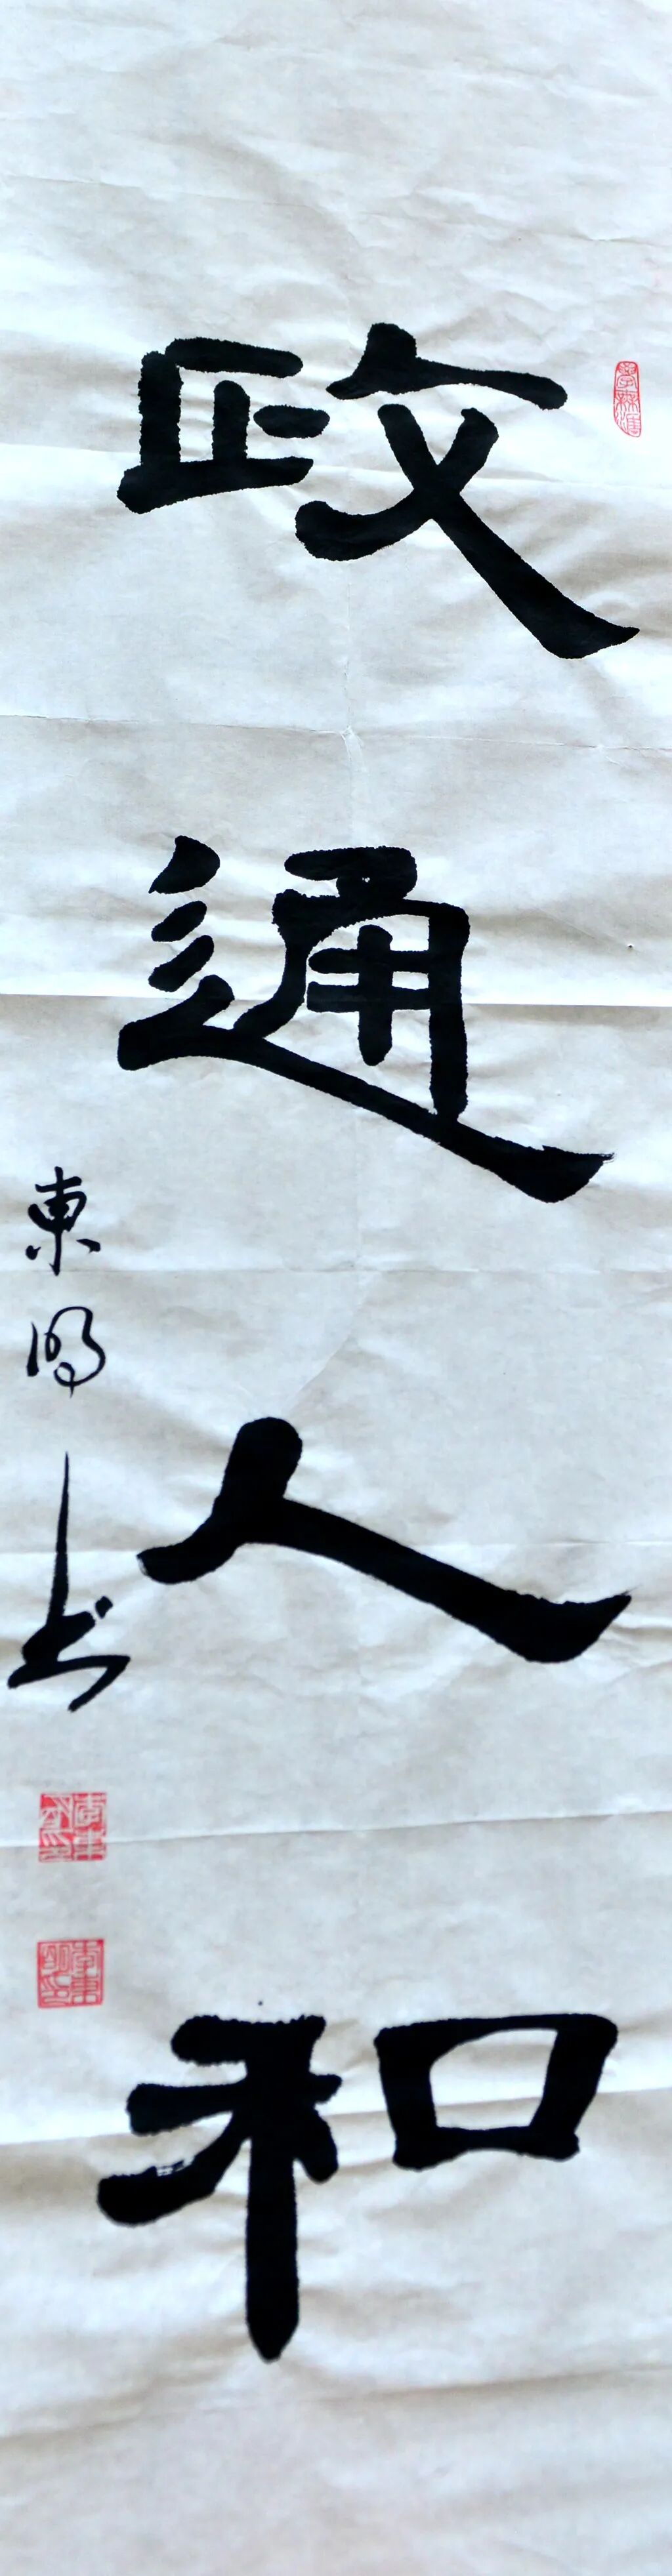 政通人和
東明书